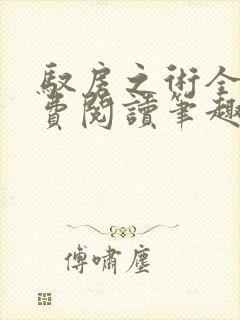 馭房之術全
費閱讀筆趣
傅嘯塵